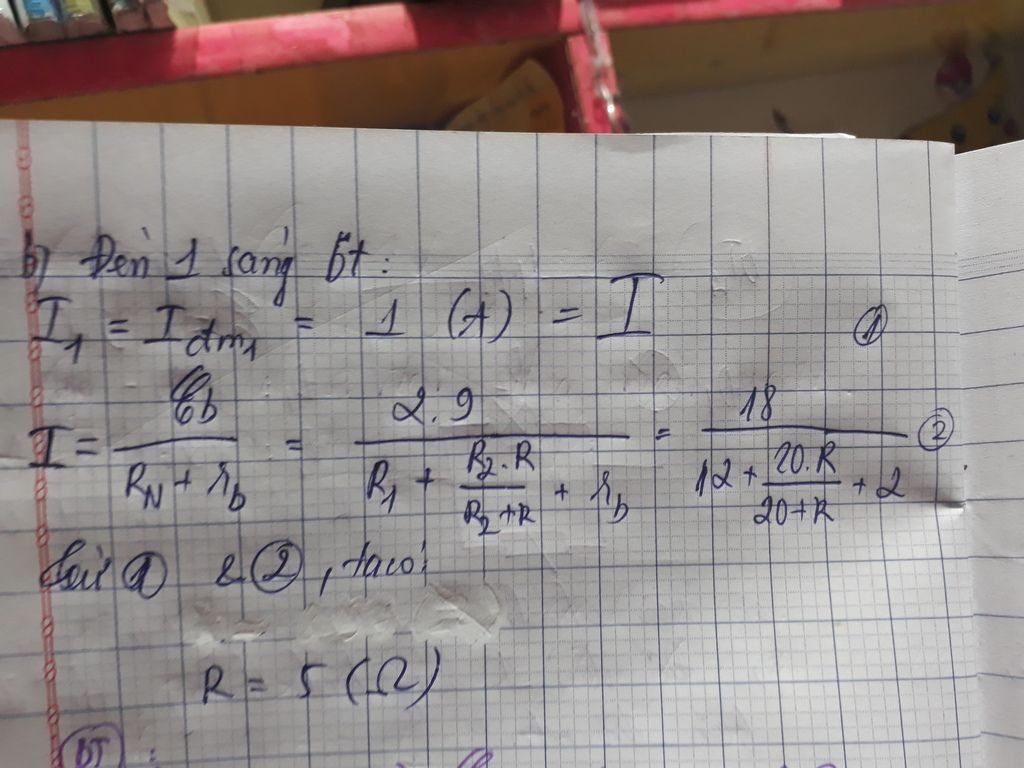 b) Đèn 1 sáng bt:
I₁ = I_đm₁ = 1 (A) = I ①
I = ℰb / (R_N + r_b) = 2.9 / (R₁ + (R₂.R)/(R₂+R) + r_b) = 18 / (12 + (20.R)/(20+R) + 2) ②
① & ②, ta có:
R = 5 (Ω)
BT :